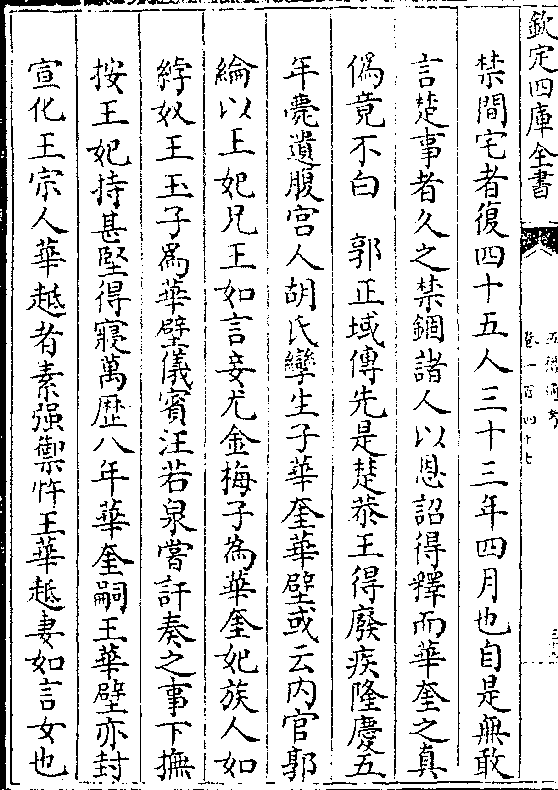 欽定四庫全書
五禮通考
卷一百四十七
禁間宅者復四十五人三十三年四月也自是無敢
言楚事者久之禁錮諸人以恩詔得釋而華奎之真
偽竟不白　郭正域傳先是楚恭王得廢疾隆慶五
年薨遺腹宮人胡氏孿生子華奎華壁或云內官郭
綸以王妃兄王如言妾尤金梅子為華奎妃族人如
綍奴王玉子為華壁儀賓汪若泉嘗訐奏之事下撫
按王妃持甚堅得寢萬歷八年華奎嗣王華壁亦封
宣化王宗人華越者素强禦忤王華越妻如言女也